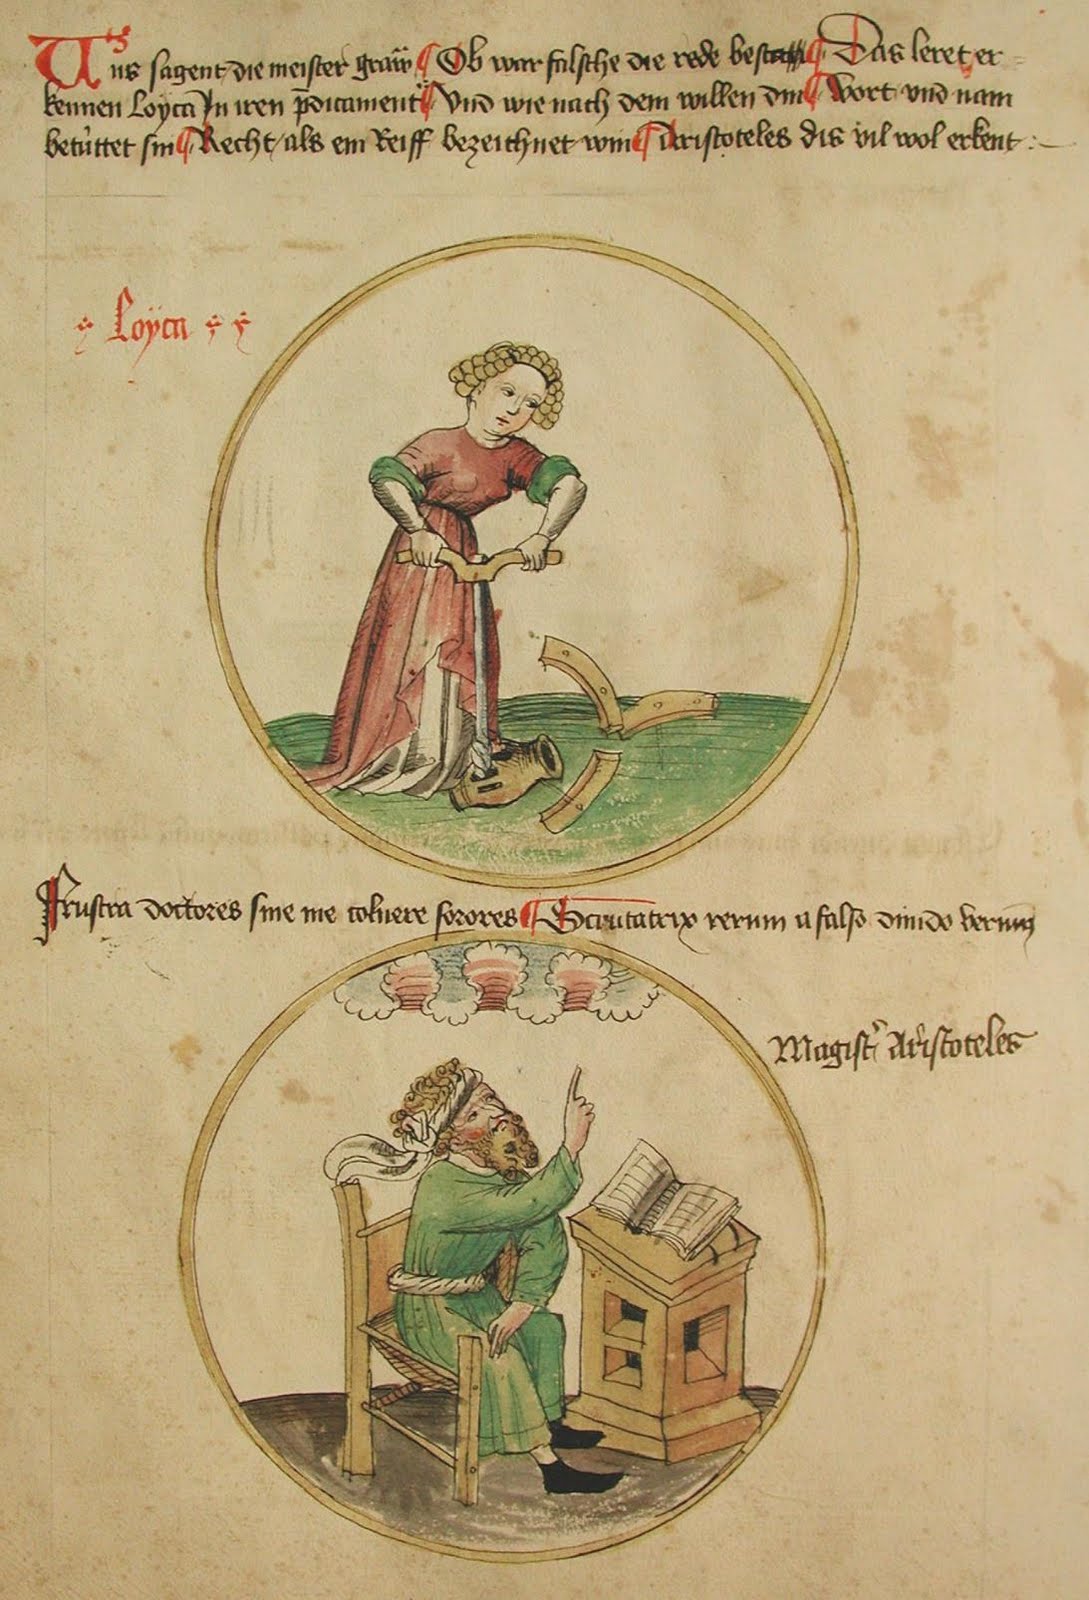 Uns sagent die meister graw ¶ Ob war falsche die rede ¶ Das leret er
kennen Loyca In iren p̄dicament ¶ Vnd wie nach dem willen din ¶ Wort vnd nam
betúttet sin ¶ Recht als ein Reiff bezeichnet win ¶ Aristoteles dis vil wol erkent
Loyca
Frustra doctores sine me coluere sorores ¶ Scrutatrix rerum a falso diuido verum
Magistr̄ Aristoteles